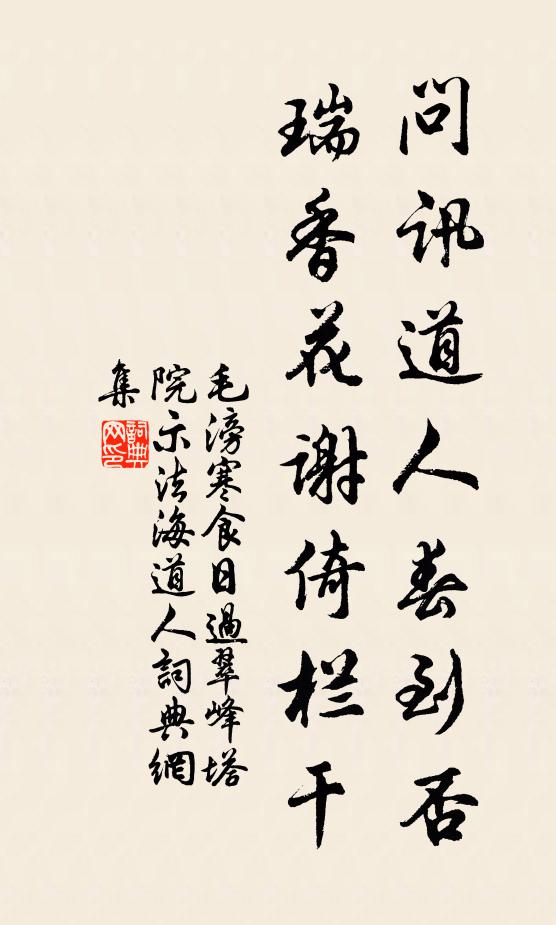 問訊道人春到否
瑞香花謝倚栏干
毛滂寒食日過翠峰塔
院示法海道人詞典網
集
詞典
网印